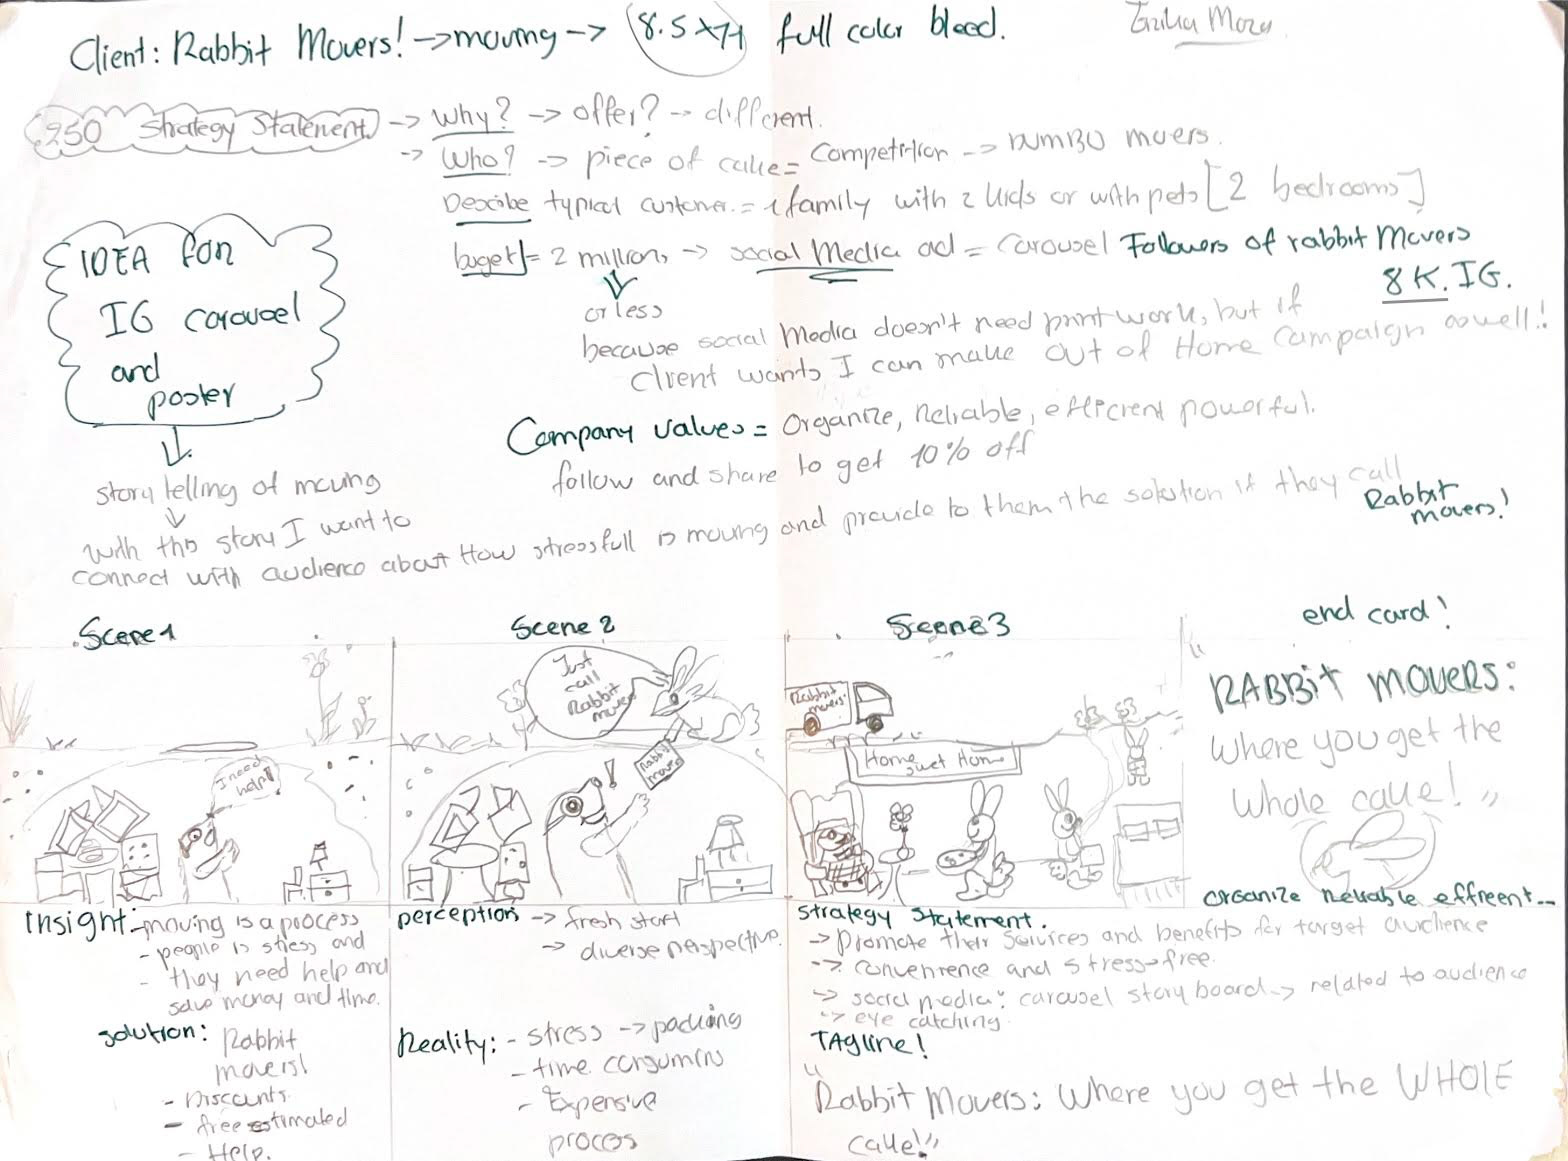 Client: Rabbit Movers! → moving → 8.5 x 11 full color bleed.
Emilia Mora
250 Strategy Statement → Why? → offer? → different.
→ Who? → piece of cake = Competition → DUMBO movers.
Describe typical customer. = 1 family with 2 kids or with pets [2 bedrooms]
buget = 2 million, → social Media ad = Carousel Followers of rabbit Movers
8K. IG.
or less
because social Media doesn't need print work, but if
client wants I can make out of Home Campaign aswell!
IDEA for
IG carousel
and
poster
Company values = Organize, Reliable, efficient powerful.
follow and share to get 10% off
story telling of moving
with this story I want to
connect with audience about How stressfull is moving and provide to them the solution if they call
Rabbit
movers!
Scene 1
Scene 2
Scene 3
end card!
I need
help!
Just
call
Rabbit
movers
Rabbit
movers
Rabbit
movers
Home
swet Home
RABBIT MOVERS:
Where you get the
Whole cake! "
organize Reliable effecient --
Insight: - moving is a process
- people is stress and
- they need help and
save money and time.
solution: Rabbit
movers!
- Discounts.
- free estimated
- Help.
perception → fresh start
→ diverse perspective.
Reality: - stress → packing
- time consuming
- Expensive
process
strategy statement.
→ promote their services and benefits for target audience
→ convenience and stress-free.
→ social media: carousel story board → related to audience
→ eye catching.
TAgline!
" Rabbit Movers: Where you get the WHOLE
cake! "